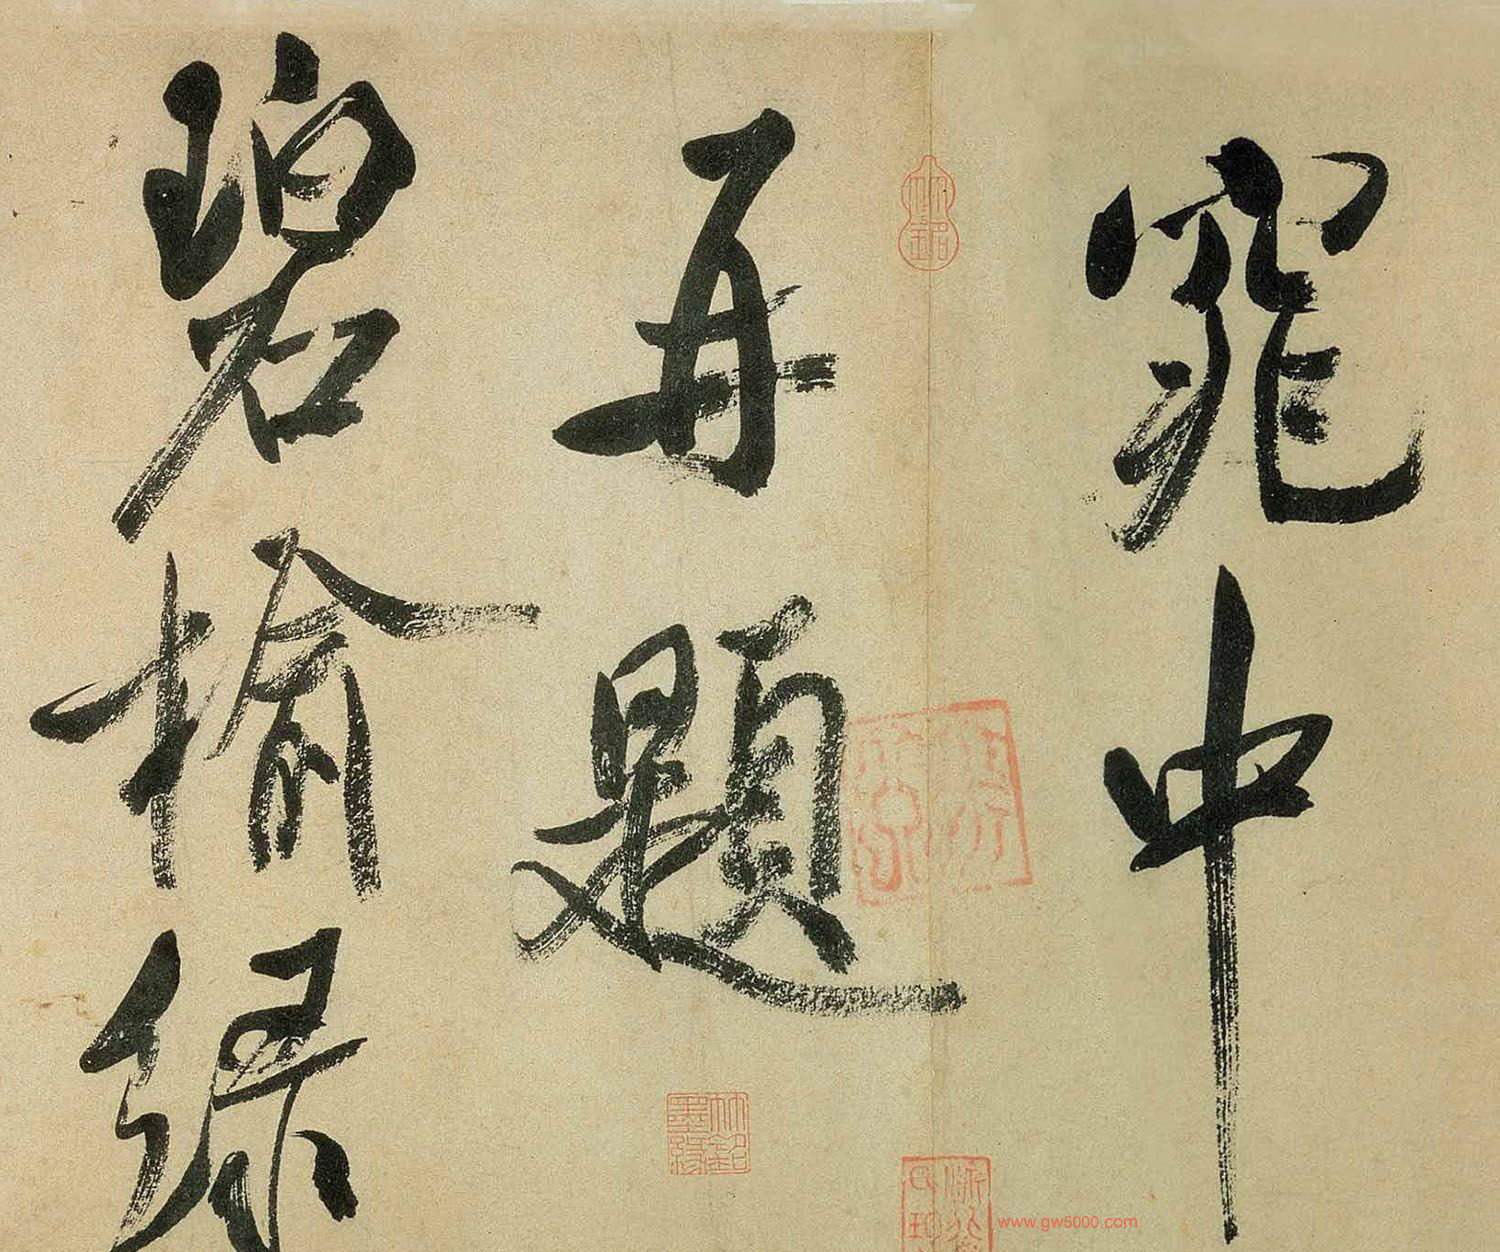 窕中
再題
碧榆綠
www.gw5000.com